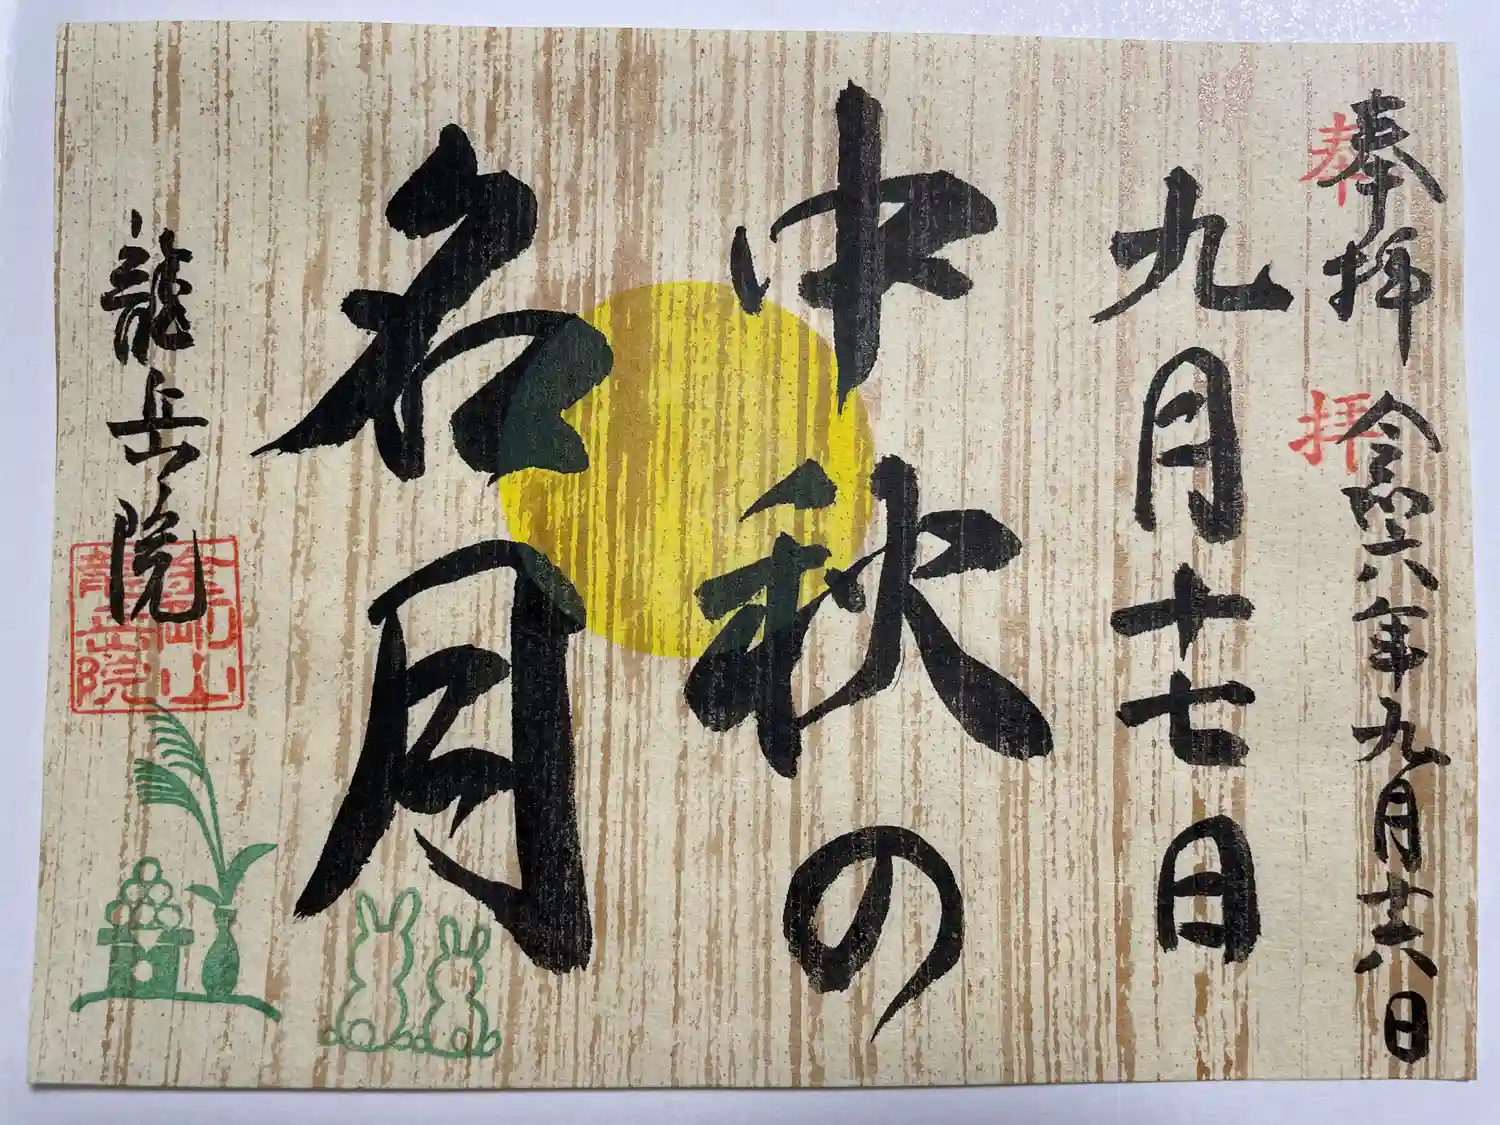 奉拝 令和六年九月十六日
奉拝
九月十七日
中秋の
名月
龍岳院
龍岳院